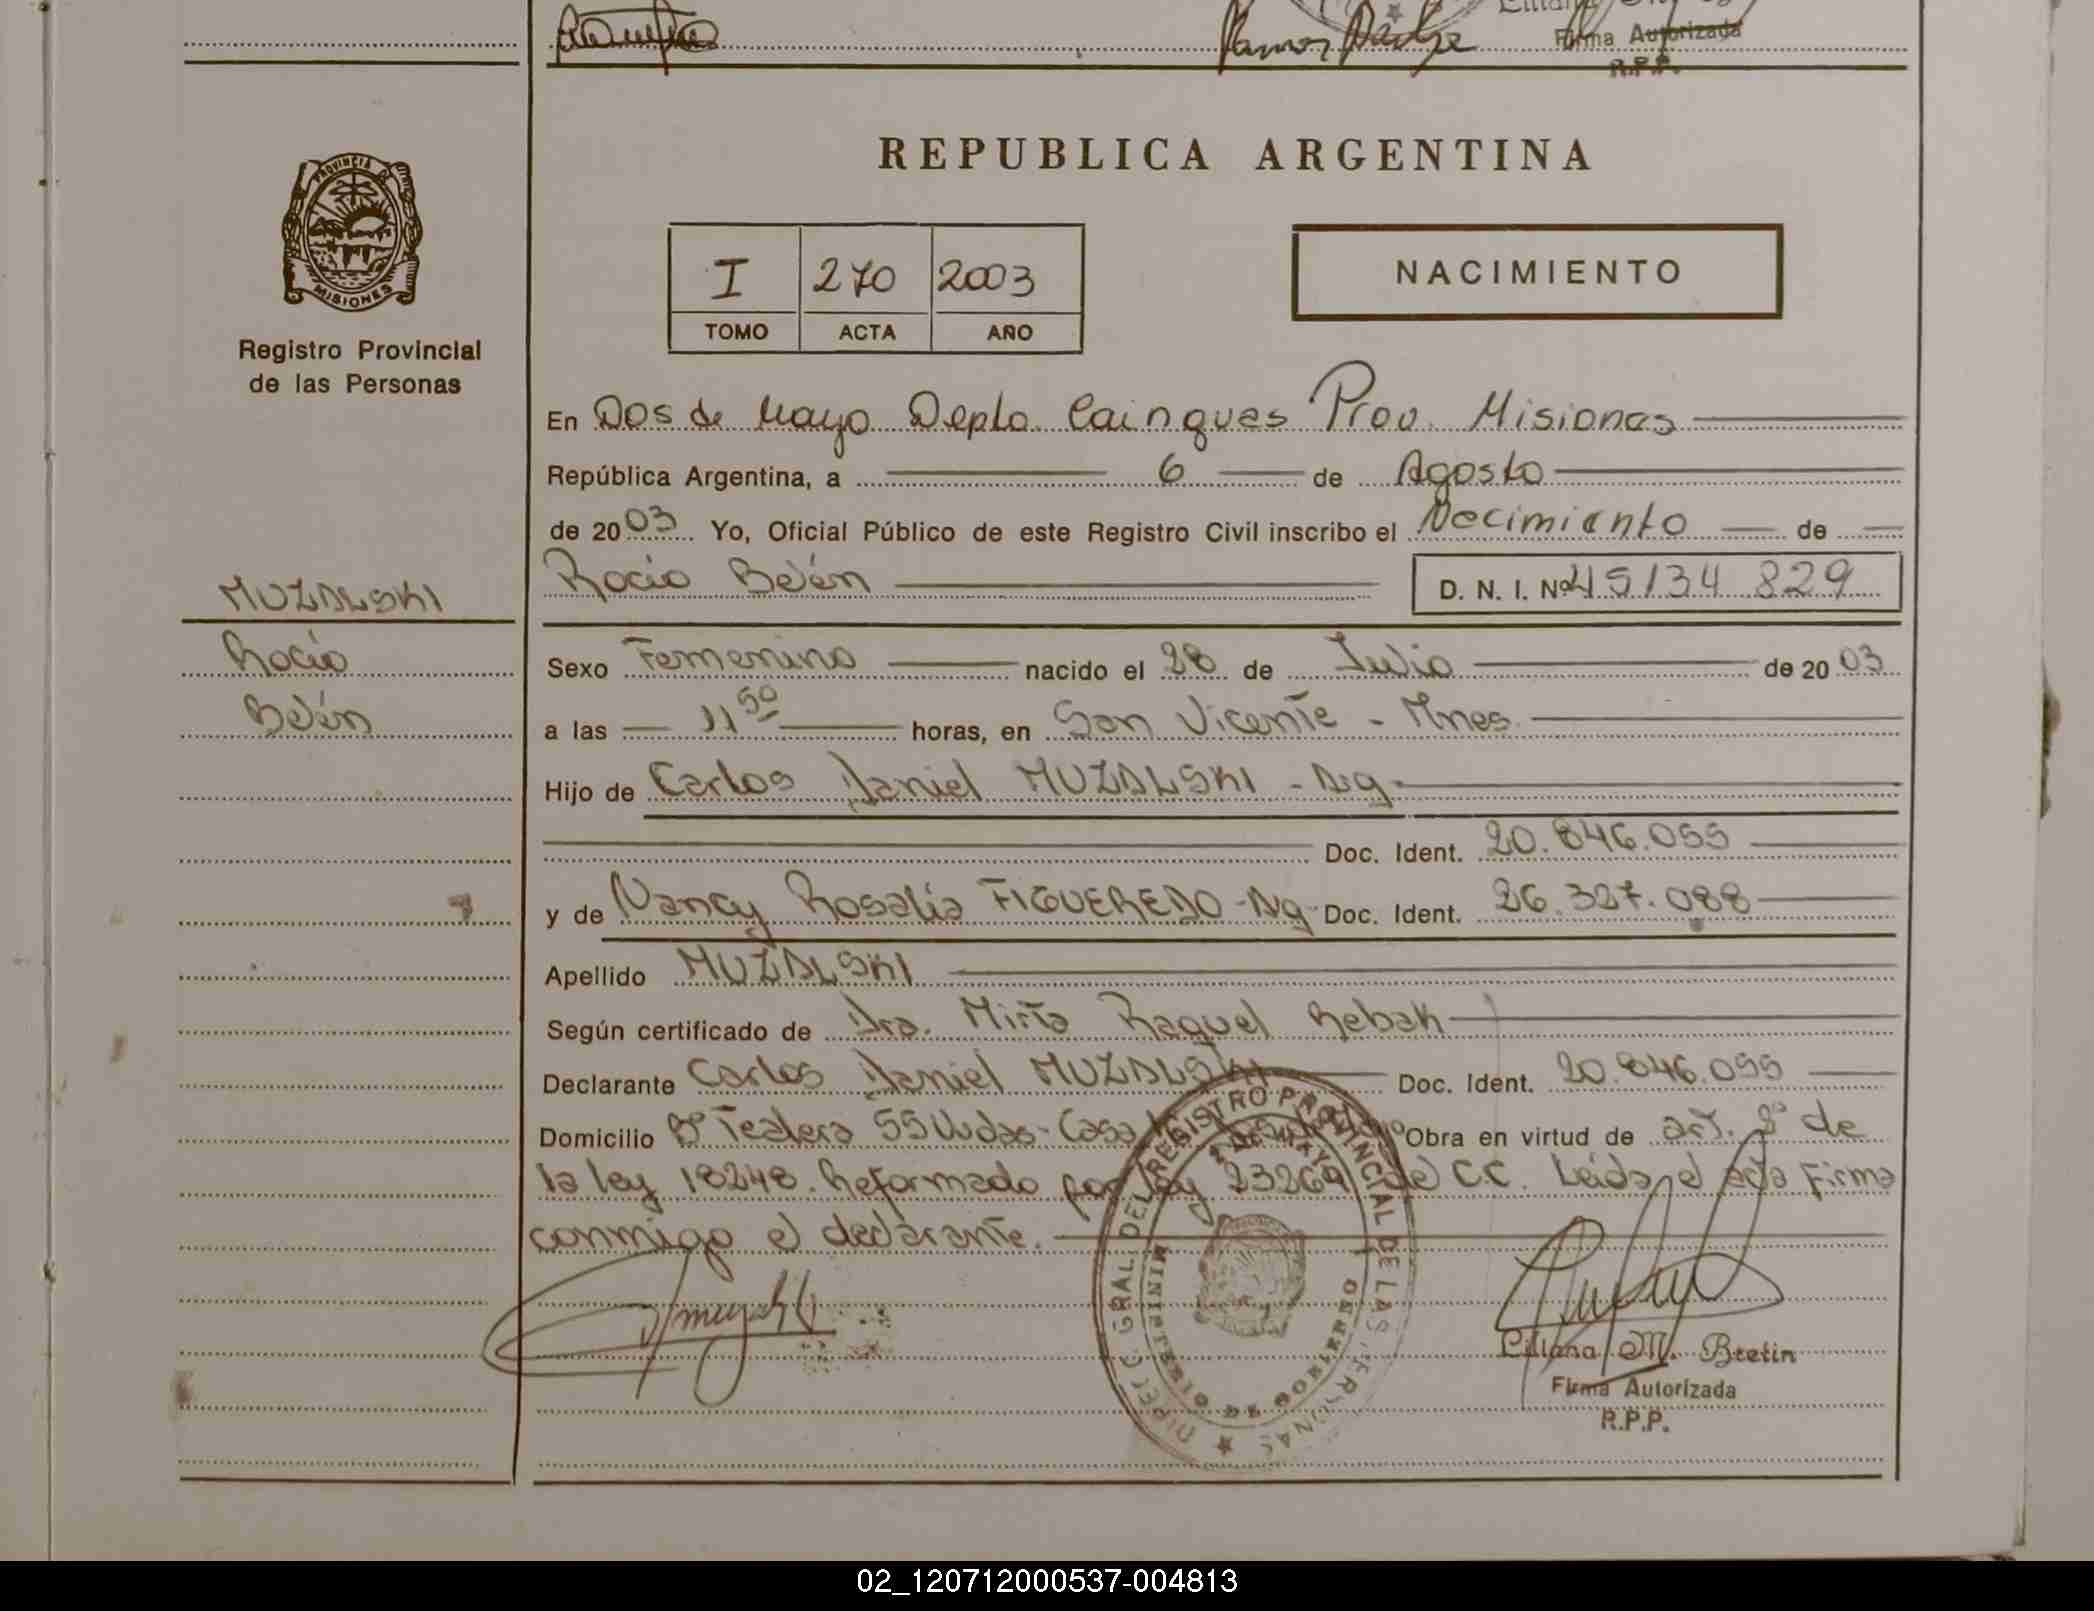 Firma Autorizada
R.P.P.
PROVINCIA DE
MISIONES
Registro Provincial
de las Personas
REPUBLICA ARGENTINA
I 270 2003
TOMO ACTA AÑO
NACIMIENTO
En Dos de Mayo Depto. Cainguas Prov. Misiones
República Argentina, a 6 de Agosto
de 2003 Yo, Oficial Público de este Registro Civil inscribo el Nacimiento de
Rocío Belén D. N. I. Nº 45134 829
MUZALSKI
Rocío
Belén
Sexo Femenino nacido el 28 de Julio de 2003
a las 11 50 horas, en San Vicente - Mnes.
Hijo de Carlos Daniel MUZALSKI - Arg
Doc. Ident. 20.846.055
y de Nancy Rosalía FIGUEREDO - Arg Doc. Ident. 26.327.088
Apellido MUZALSKI
Según certificado de Dra. Mirta Raquel Rebak
Declarante Carlos Daniel MUZALSKI Doc. Ident. 20.846.055
Domicilio Bº Tealera 55 Vvdas - Casa Obra en virtud de art. 2º de
la ley 18248. Reformado por ley 23264 de C.C. Leída el acta firma
conmigo el declarante.
DIREC. GRAL. DEL REGISTRO PROVINCIAL DE LAS PERSONAS
MINISTERIO DE GOBIERNO
Liliana M. Bretin
Firma Autorizada
R.P.P.
02_120712000537-004813